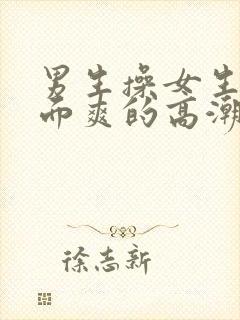 男生操女生
而爽的高潮
徐志新